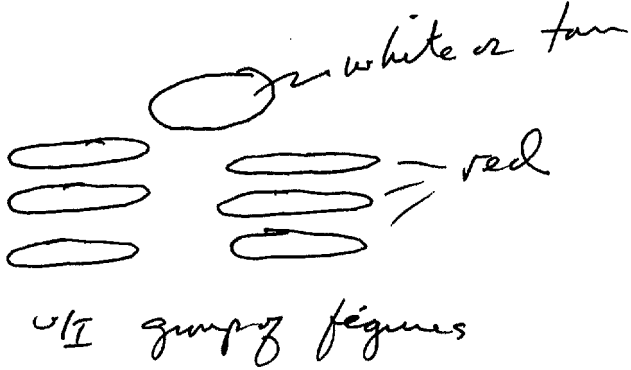 white or tan
red
U/I group of figures